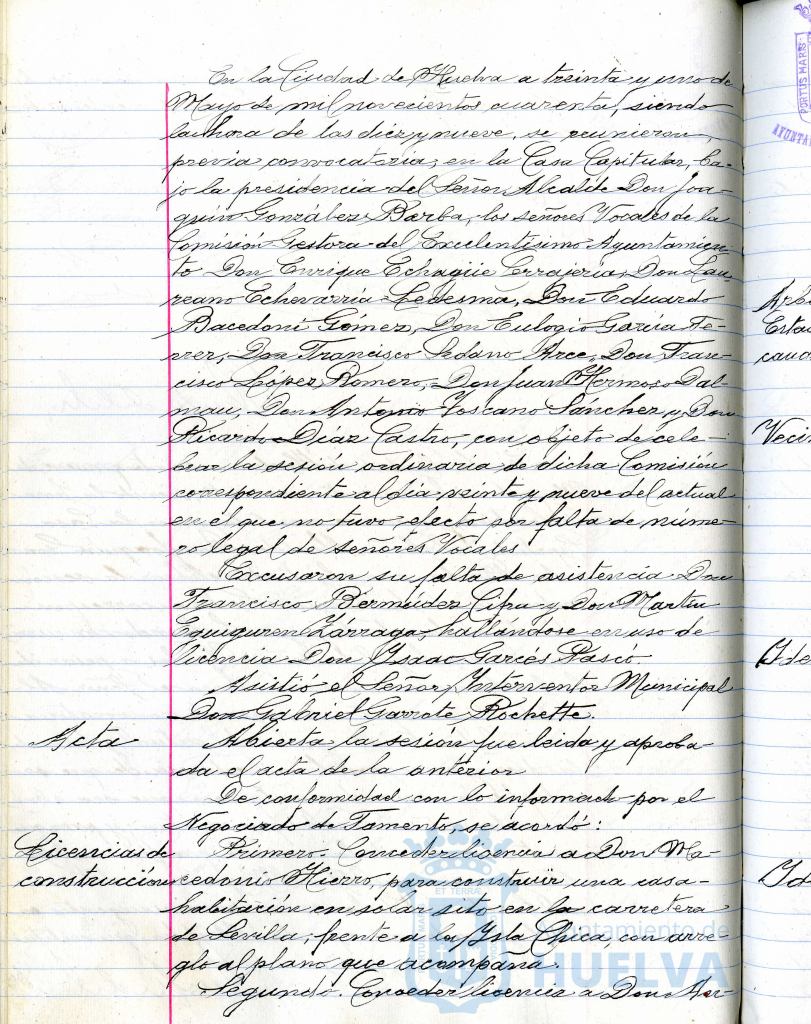 En la Ciudad de Huelva a treinta y uno de
Mayo de mil novecientos cuarenta, siendo
la hora de las diez y nueve, se reunieron,
previa convocatoria, en la Casa Capitular, ba-
jo la presidencia del Señor Alcalde Don Joa-
quin González Barba, los señores Vocales de la
Comisión Gestora del Excelentísimo Ayuntamien-
to Don Enrique Echagüe Errajeria, Don Lau-
reano Echevarría Ledesma, Don Eduardo
Bacedoní Gómez, Don Eulogio García Fe-
rrer, Don Francisco Sedano Arce, Don Fran-
cisco López Romero, Don Juan Hermoso Dal-
mau, Don Antonio Toscano Sánchez y Don
Ricardo Díaz Castro, con objeto de cele-
brar la sesión ordinaria de dicha Comisión
correspondiente al día veinte y nueve del actual
en el que no tuvo efecto por falta de núme-
ro legal de señores Vocales
Excusaron su falta de asistencia Don
Francisco Bermúdez Cifru y Don Martin
Eguiguren Zárraga, hallándose en uso de
licencia Don Ysaac Garcés Pascó.
Asistió el Señor Interventor Municipal
Don Gabriel Garrote Rochette.
Acta
Abierta la sesión fue leida y aproba-
da el acta de la anterior
De conformidad con lo informado por el
Negociado de Fomento, se acordó:
Licencias de
construcción
Primero. Conceder licencia a Don Ma-
cedonio Hierro, para construir una casa-
habitación en solar sito en la carretera
de Sevilla, frente a la Ysla Chica, con arre-
glo al plano que acompaña.
Segundo. Conceder licencia a Don Mar-
Ayuntamiento de
HUELVA
PORTUS MARIS
AYUNTA
Veci
Yde
Yd